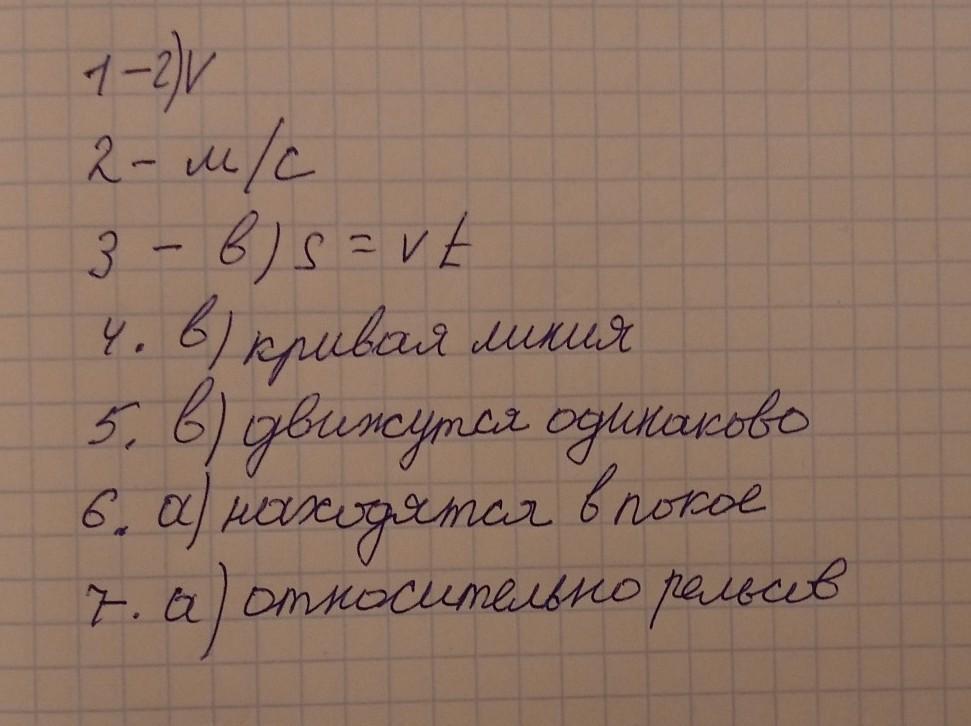 1-г)v
2 - м/с
3 - в) s = vt
4. в) кривая линия
5. в) движутся одинаково
6. а) находятся в покое
7. а) относительно рельсов